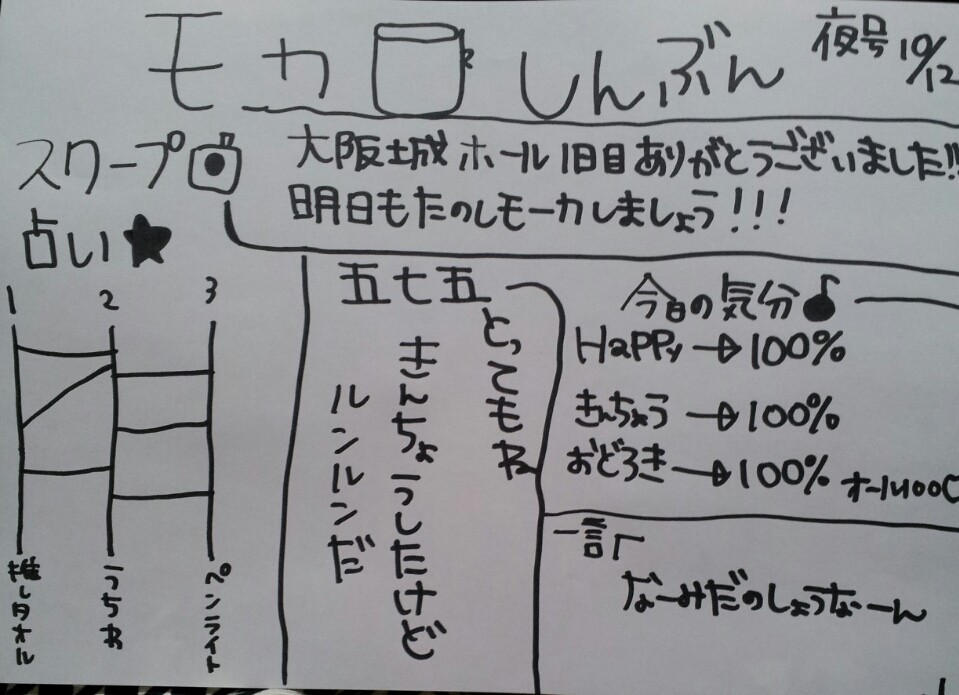 モカ しんぶん
夜号 10/12
スクープ
大阪城ホール1日目ありがとうございました!!
明日もたのしモーカしましょう!!!
占い★
1 2 3
推しタオル
うちわ
ペンライト
五七五
とってもね
きんちょうしたけど
ルンルンだ
今日の気分♪
Happy→100%
きんちょう→100%
おどろき→100%
オール100
一言「
なーみだのしょうなーん